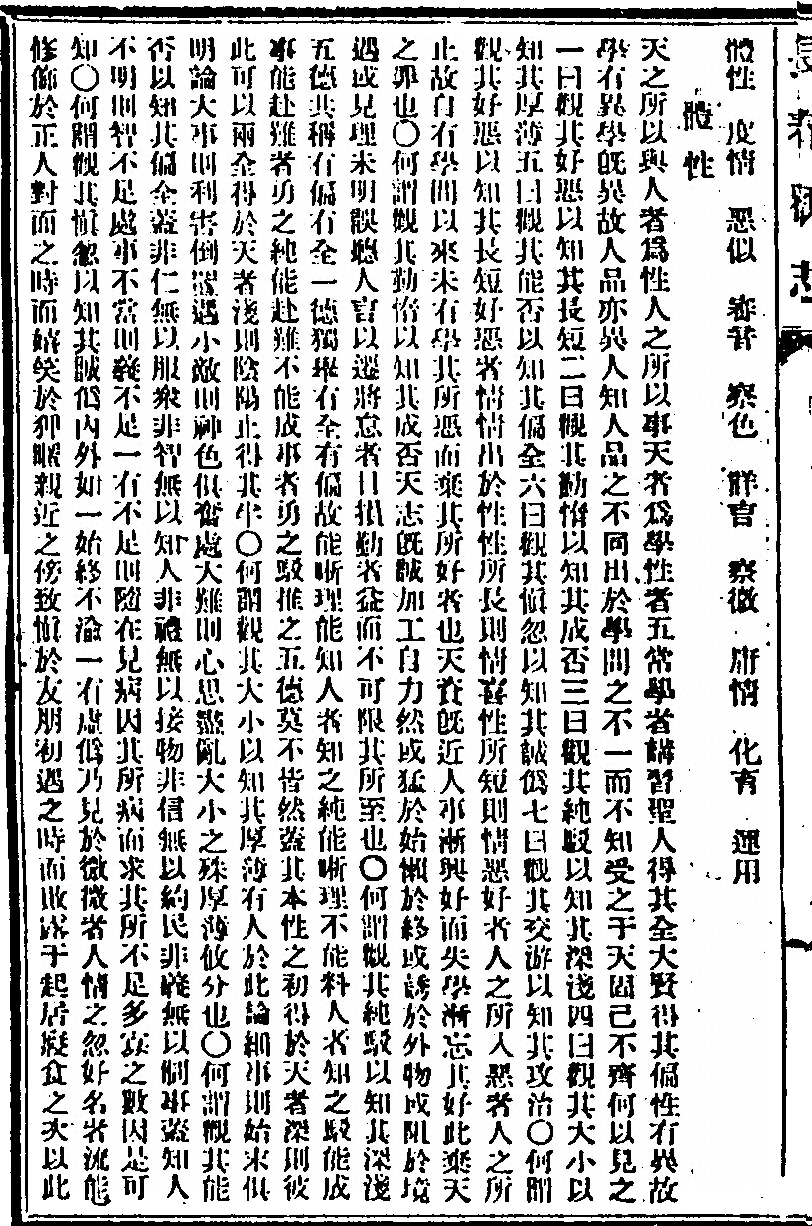 體性 度情 惡似 審音 察色 辨言 察微 庸情 化育 運用
體性
天之所以與人者爲性人之所以事天者爲學性者五常學者講習聖人得其全大賢得其偏性有異故
學有異學旣異故人品亦異人知人品之不同出於學問之不一而不知受之于天固已不齊何以見之
一曰觀其好惡以知其長短二曰觀其勤惰以知其成否三曰觀其純駁以知其深淺四曰觀其大小以
知其厚薄五曰觀其能否以知其偏全六曰觀其愼忽以知其誠僞七曰觀其交游以知其攻治〇何謂
觀其好惡以知其長短好惡者情情出於性性所長則情喜性所短則情惡好者人之所人惡者人之所
止故自有學問以來未有學其所惡而棄其所好者也天資旣近人事漸興好而失學漸忘其好此棄天
之罪也〇何謂觀其勤惰以知其成否天志旣誠加工自力然或猛於始懶於終或誘於外物或阻於境
遇或見理未明誤聽人言以遷將怠者日損勤者益而不可限其所至也〇何謂觀其純駁以知其深淺
五德共稱有偏有全一德獨舉有全有偏故能晰理能知人者知之純能晰理不能料人者知之駁能成
事能赴難者勇之純能赴難不能成事者勇之駁推之五德莫不皆然蓋其本性之初得於天者深則彼
此可以兩全得於天者淺則陰陽止得其半〇何謂觀其大小以知其厚薄有人於此論細事則始末俱
明論大事則利害倒置遇小敵則神色俱奮處大難則心思盡亂大小之殊厚薄攸分也〇何謂觀其能
否以知其偏全蓋非仁無以服衆非智無以知人非禮無以接物非信無以約民非義無以制事蓋知人
不明則智不足處事不當則義不足一有不足則隨在見病因其所病而求其所不足多寡之數因是可
知〇何謂觀其愼忽以知其誠僞內外如一始終不渝一有虛僞乃見於微微者人情之忽好名者流能
修飾於正人對面之時而嬉笑於狎暱親近之傍致愼於友朋初遇之時而敗露于起居寢食之次以此